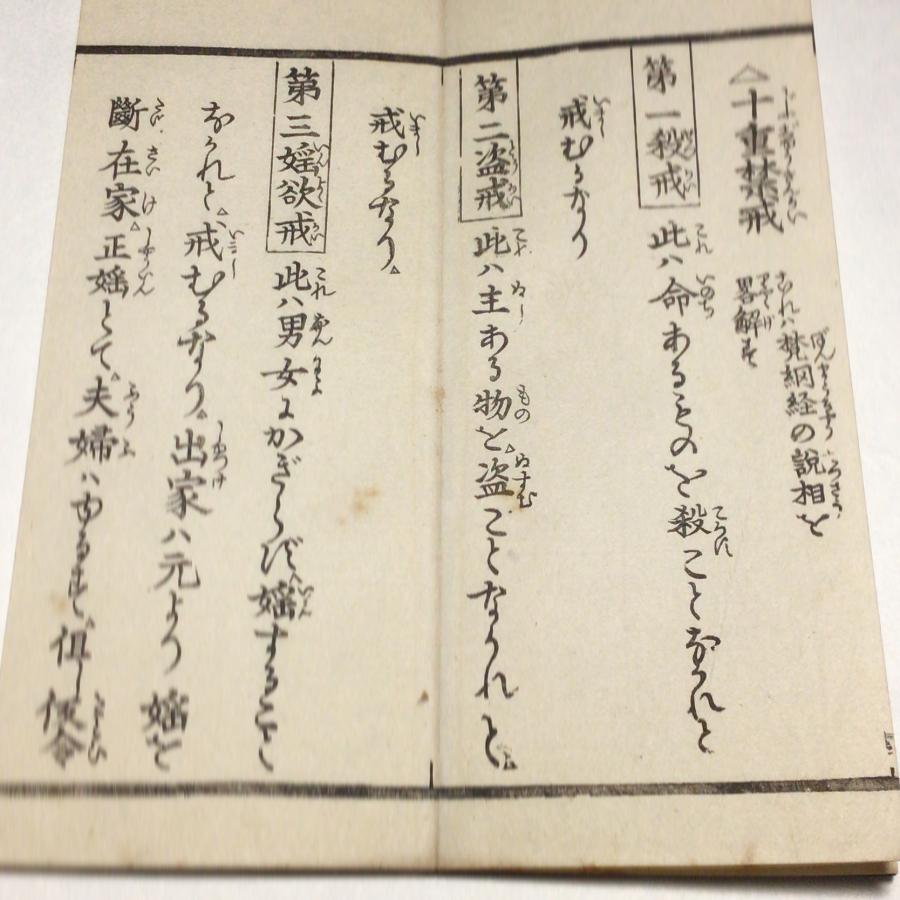 △十重禁戒 これハ梵網経の説相を
畧解す
第一殺戒 此ハ命あるものを殺ことなかれと
戒むるなり
第二盗戒 此ハ主ある物を盗ことなかれと
戒むるなり
第三婬欲戒 此ハ男女にかぎらず婬すること
なかれと戒むるなり出家ハ元より婬を
斷在家正婬とて夫婦ハゆるす但し仮令